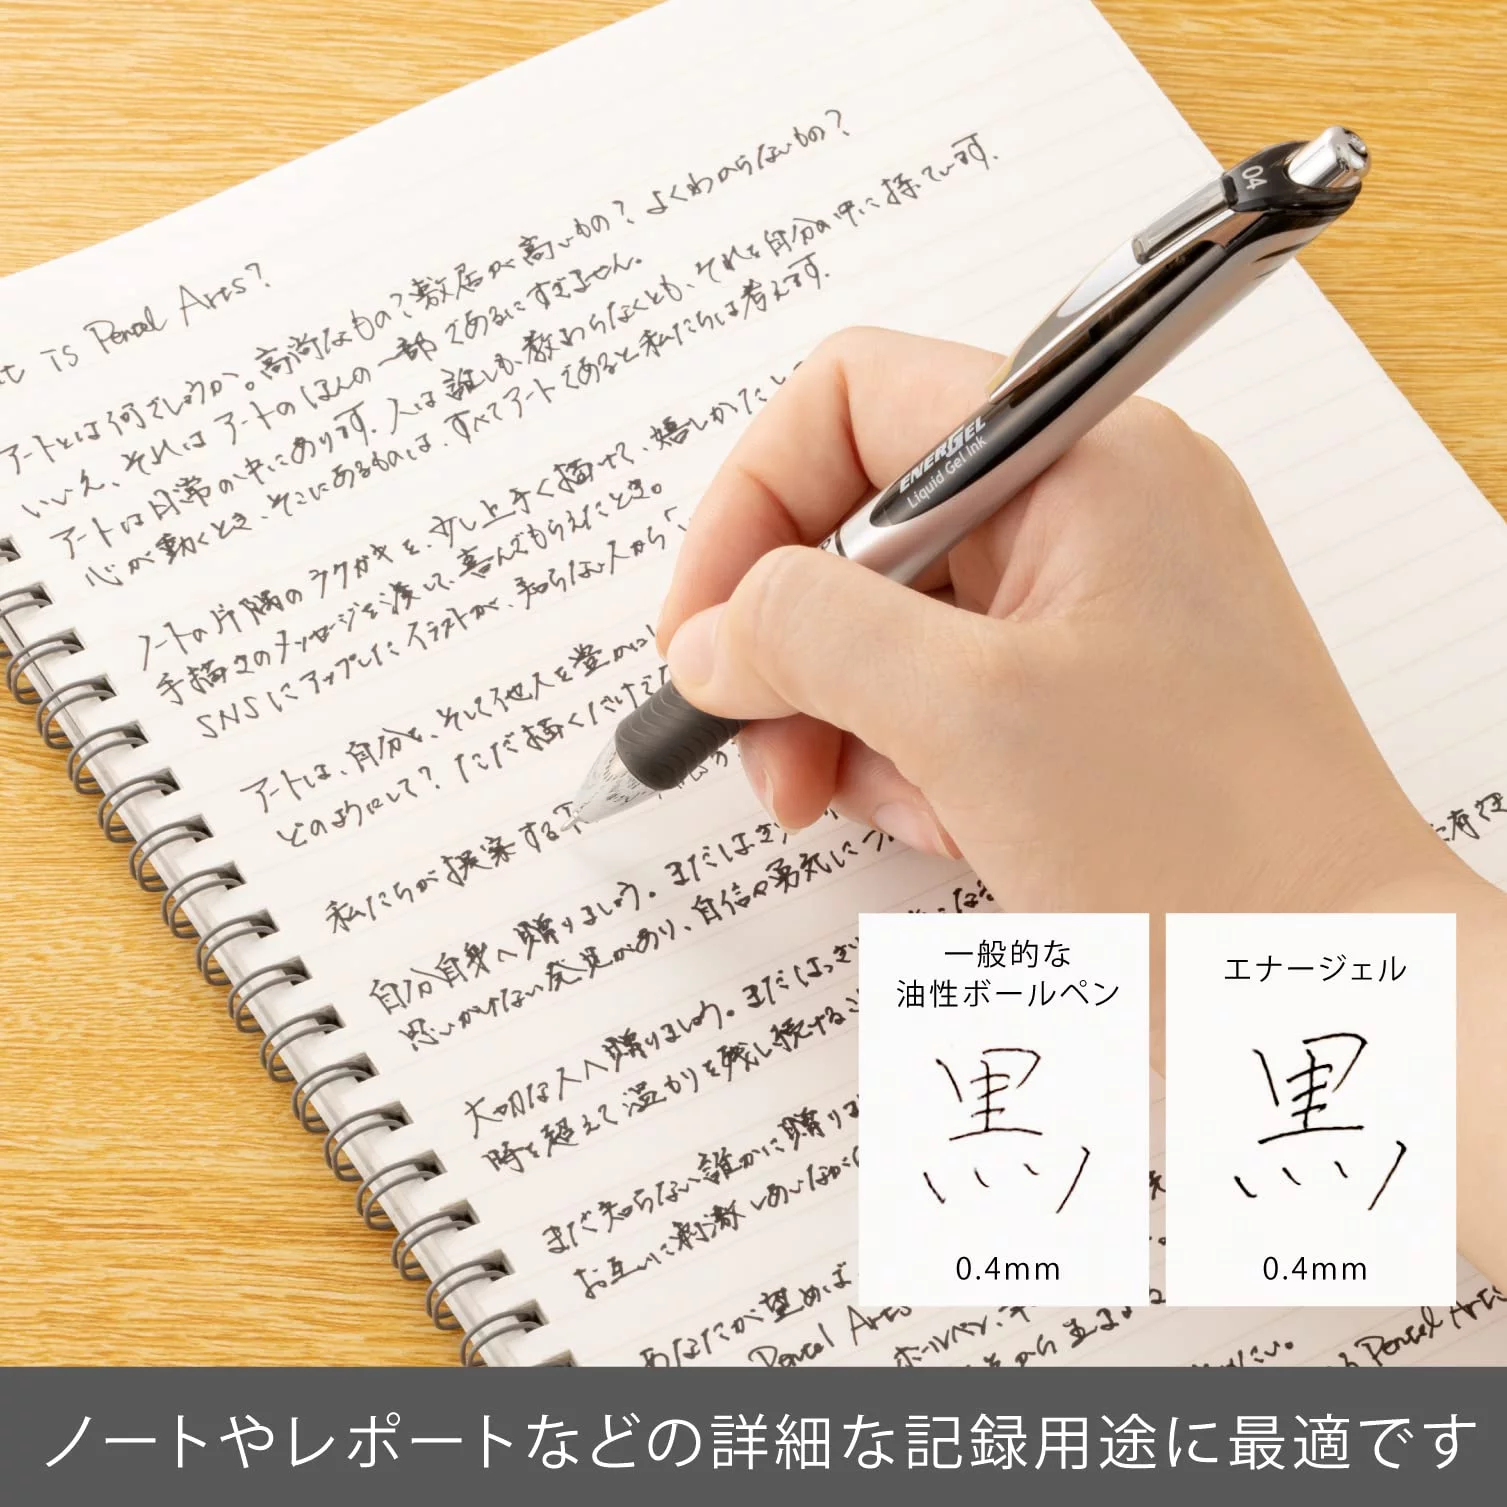 TS Pentel Arts?
アートとは何でしょうか。高尚なもの？敷居が高いもの？よくわからないもの？
いいえ、それはアートのほんの一部であるにすぎません。
アートは日常の中にあります。人は誰しも、教わらなくとも、それを自分の中に探しています。
心が動くとき、そこにあるものは、すべてアートであると私たちは考えます。
ノートの片隅のラクガキを、少し上手く描けて、嬉しかった
手描きのメッセージを渡して、喜んでもらえたとき。
SNSにアップしたイラストが、知らない人から「
アートは、自分を、そして他人を豊かに
どのようにして？ ただ描くだけで
私たちが提案する
自分自身へ贈りましょう。まだはっきり
思いがけない発見があり、自信や勇気に
大切な人へ贈りましょう。まだはっきり
時を超えて温もりを残し続ける
まだ知らない誰かに贈り
お互いに刺激しあいながら
あなたが望めば
Pentel Arts
ボールペン、
Pentel Arts
04
ENERGEL
Liquid Gel Ink
一般的な
油性ボールペン
黒
0.4mm
エナージェル
黒
0.4mm
ノートやレポートなどの詳細な記録用途に最適です